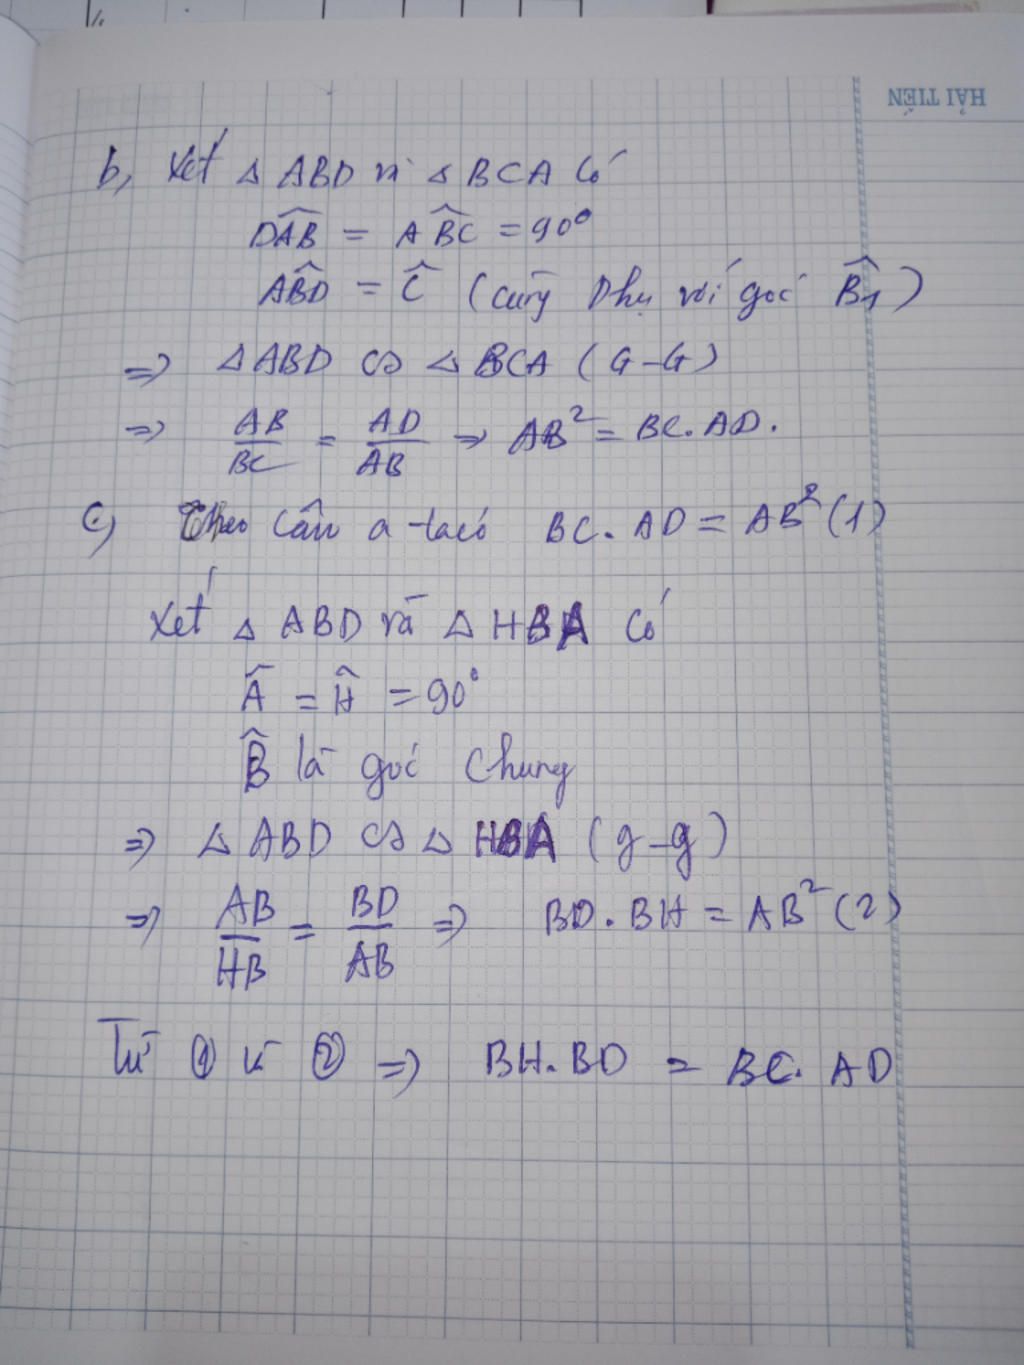 HẢI TIẾN
b, Xét △ ABD và △ BCA có
DÂB = AB̂C = 90°
AB̂D = Ĉ (cùng phụ với góc B̂1)
=> △ ABD ∽ △ BCA (G-G)
=> AB/BC = AD/AB => AB² = BC.AD.
c) Theo câu a ta có BC.AD = AB² (1)
Xét △ ABD và △ HBA có
Â = Ĥ = 90°
B̂ là góc chung
=> △ ABD ∽ △ HBA (g-g)
=> AB/HB = BD/AB => BD.BH = AB² (2)
Từ ① và ② => BH.BD = BC.AD